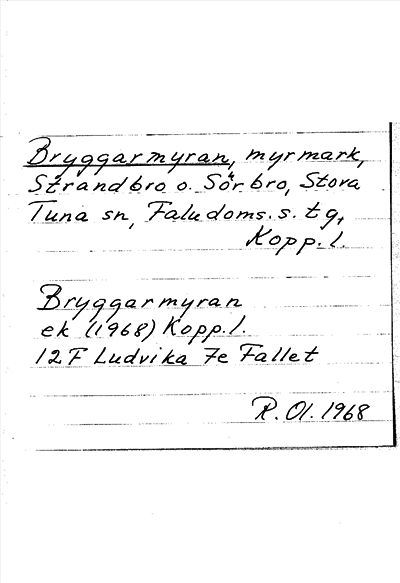 Bryggarmyran, myrmark,
Strandbro o. Sörbro, Stora
Tuna sn, Faludoms. s. tg,
Kopp. l.
Bryggarmyran
ek (1968) Kopp. l.
12F Ludvika 7e Fallet
R. Ol. 1968